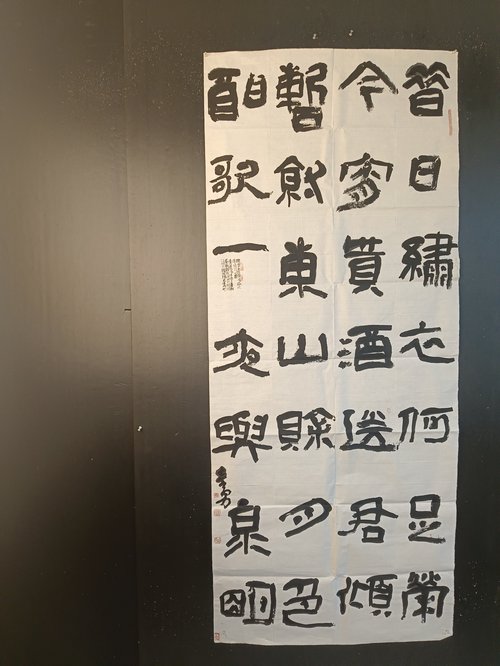 昔日繡衣何足榮
今宵貰酒送君傾
暫就東山賒月色
酣歌一夜與泉明